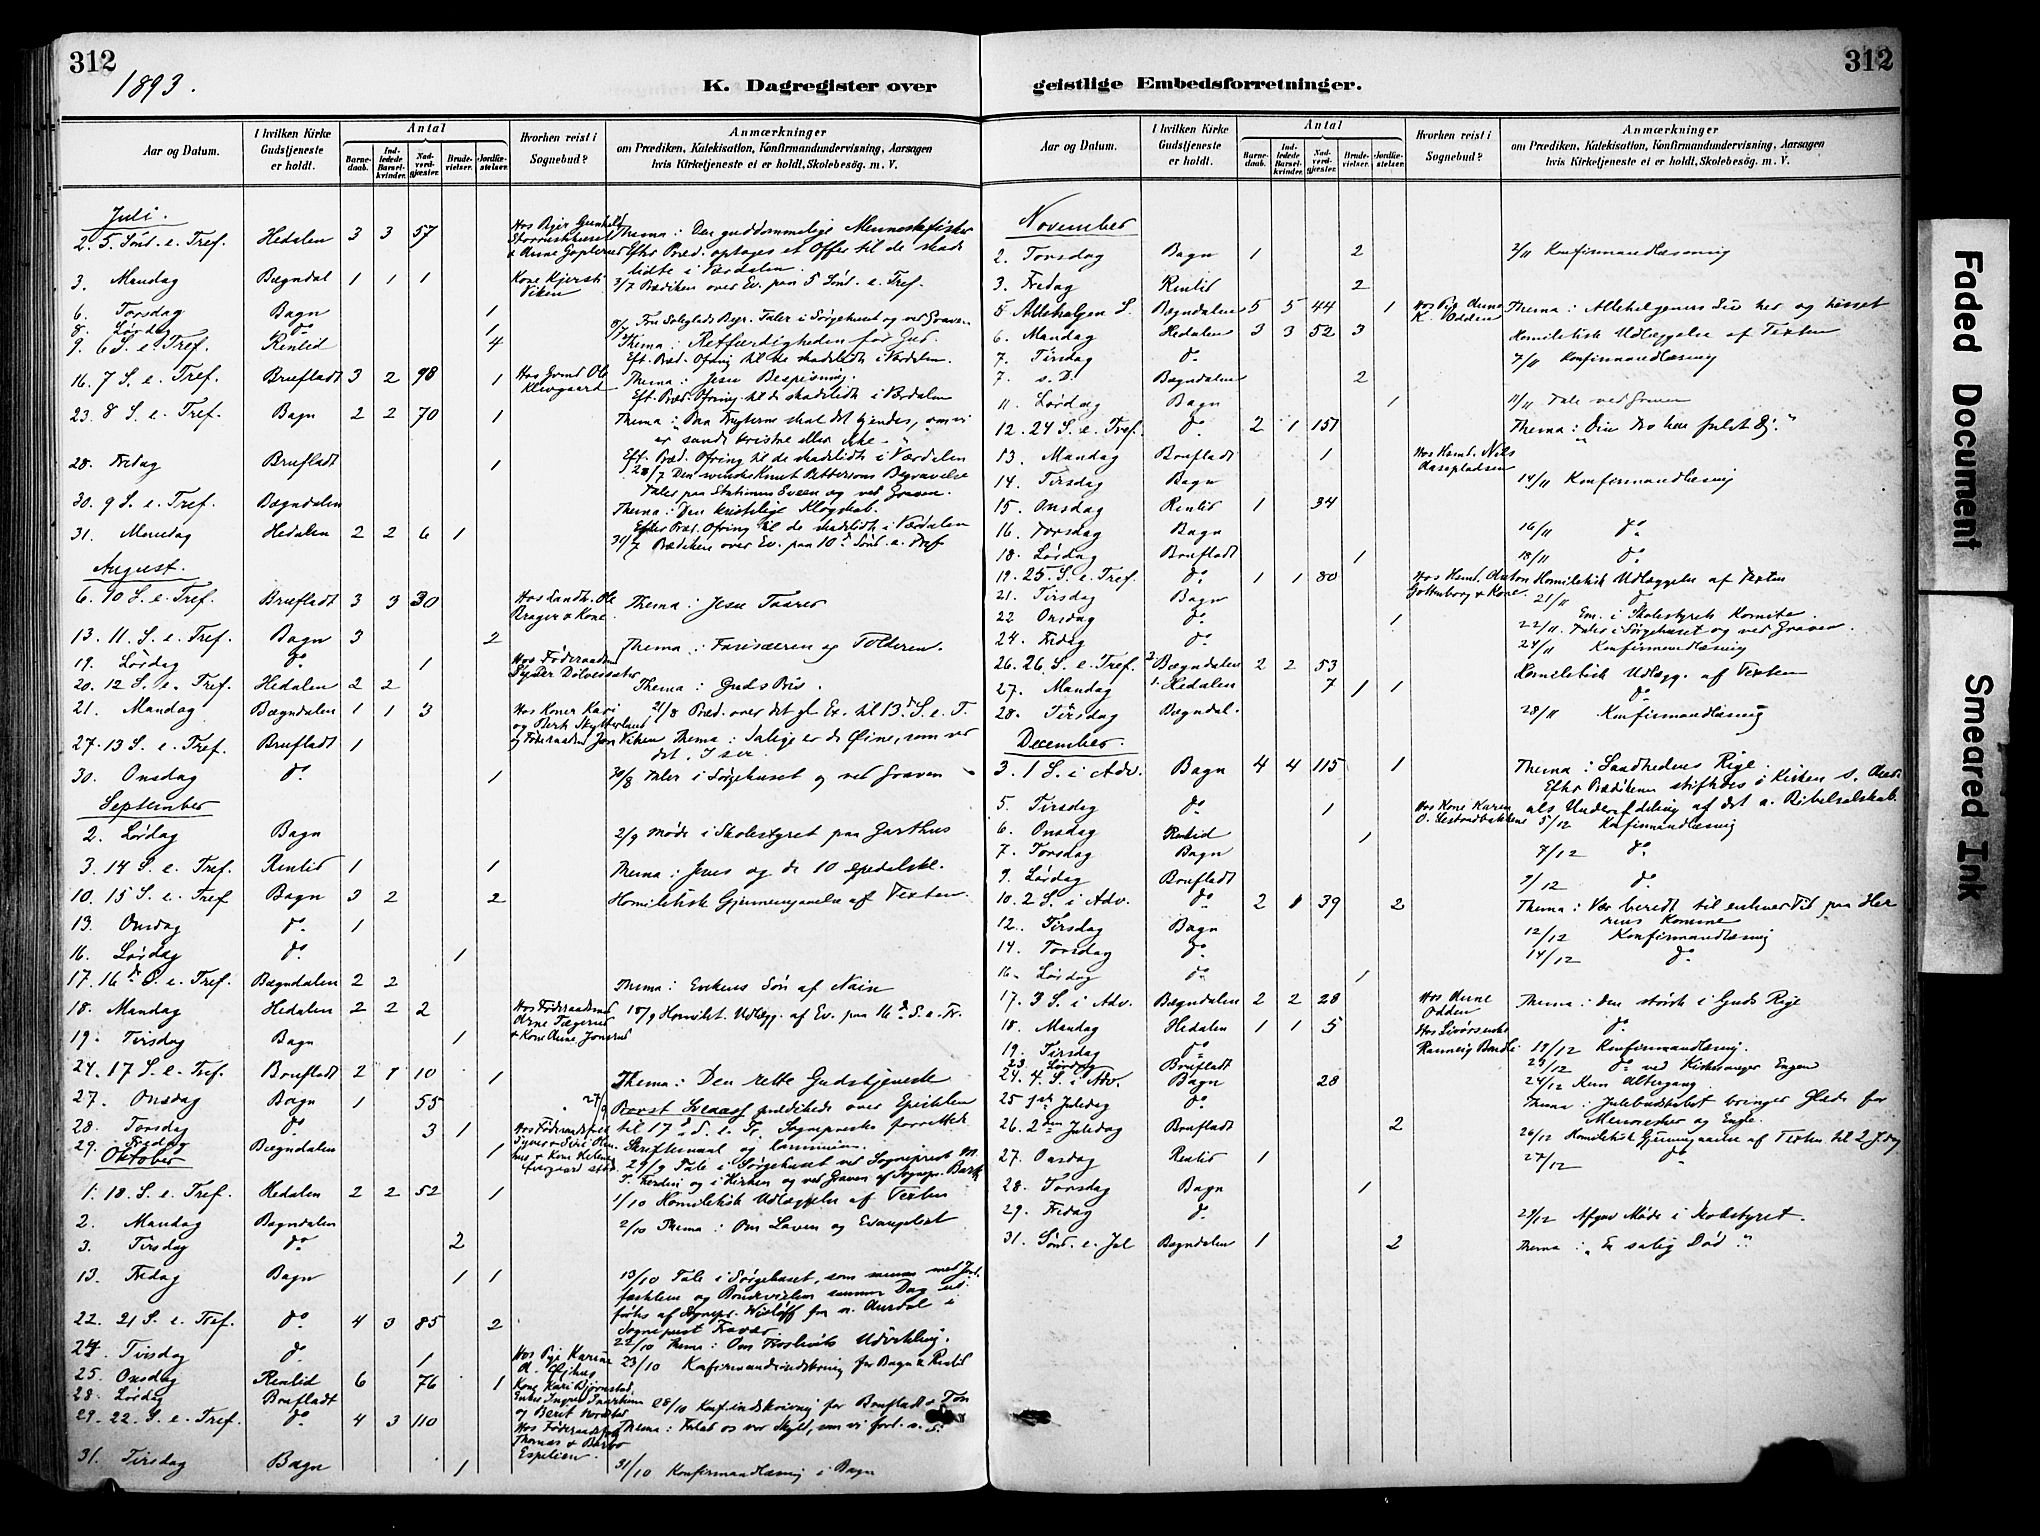 312
1893.
K. Dagregister over
Aar og Datum.
I hvilken Kirke Gudstjeneste er holdt.
Antal
Barne-daab.
Ind-ledede Barsel-kvinder.
Nad-verd-gjæster.
Brude-vielser.
Jordfæ-stelser.
Hvorhen reist i Sognebud?
Anmærkninger
om Prædiken, Katekisation, Konfirmandundervisning, Aarsagen
hvis Kirketjeneste ei er holdt, Skolebesög. m. V.
Juli.
2. 5. Sönd. e. Tref. Hedalen 3 3 57 Thema: Den guddommelige Menneskefisker
Efter Præd. optages et Offer til de skade
lidte i Værdalen.
3. Mandag Bægndal 1 1 1 Kone Kjersti Viken 3/7 Prædiken over Ev. paa 5 Sönd. e. Tref.
6. Torsdag Bagn 1
8. Lørdag do 1 8/7 Taler i Sørgehuset og ved Graven
9. 6 S. e. Tref. Reinlid 4 Thema: Retfærdigheden for Gud.
Eft. Præd. Ofring til de skadelidte i Værdalen.
16. 7 S. e. Tref. Bruflat 3 2 98 1 Thema: Jesu Bespisning.
Eft. Præd. Ofring til de skadelidte i Værdalen
23. 8 S. e. Tref. Bagn 2 2 70 1 Thema: "Paa Frugterne skal det kjendes, om vi
er sande kristne eller ikke."
Eft. Præd. Ofring til de skadelidte i Værdalen
28. Fredag Bruflat 1 28/7 Den svenske Knut Pettersons Begravelse
Taler paa Stationen Sveen og ved Graven.
30. 9 S. e. Tref. Bægndalen Thema: Den kristelige Klogskab.
Efter Præd. Ofring til de skadelidte i Værdalen
31. Mandag Hedalen 2 2 6 1 31/7 Prædiken over Ev. paa 10d Sönd. e. Tref
August.
6. 10 S. e. Tref. Bruflat 3 3 30 Thema: Jesu Taarer
13. 11. S. e. Tref. Bagn 3 2 Thema: Farisæeren og Tolderen.
19. Lørdag do 1
20. 12 S. e. Tref. Hedalen 2 2 Thema: Guds Pris.
21. Mandag Bægndalen 1 1 3 21/8 Præd. over det gl. Ev. til 13d S. e. T.
27. 13 S. e. Tref. Bruflat 1 Thema: Salige er de Øine, som ser
det, I ser
30. Onsdag do 1 30/8 Taler i Sørgehuset og ved Graven
September
2. Lørdag Bagn 2/9 Møde i Skolestyret paa Garthus
3. 14 S. e. Tref. Reinlid 1 1 Thema: Jesus og de 10 spedalske.
10. 15 S. e. Tref Bagn 3 2 2 Homiletisk Gjennemgaaelse af Texten
13. Onsdag do 1
16. Lørdag do 1
17. 16d S. e. Tref. Bægndalen 2 2 Thema: Enkens Søn af Nain
18. Mandag Hedalen 2 2 2 18/9 Homilet. Udlægg. af Ev. paa 16d S. e. Tr.
19. Tirsdag Bagn 1
24. 17 S. e. Tref. Bruflat 2 1 10 1 Thema: Den rette Gudstjeneste
27. Onsdag Bagn 1 55 27/9 Provst prædikede over Epistelen
28. Torsdag do 3 1 til 17d S. e. Tr. Sognepræsten forrettede
Skriftemaal og Kommunion.
29. Fredag Bægndalen 1 29/9 Tale i Sørgehuset ved Sognepræst
og i Kirken og ved Graven af Sognepr.
Oktober
1. 18. S. e. Tref. Hedalen 2 2 52 1 1/10 Homiletisk Udlæggelse af Texten
2. Mandag Bægndalen 2/10 Thema: Om Loven og Evangeliet
3. Tirsdag do 2
13. Fredag Bagn 1 1 13/10 Tale i Sørgehuset, som sammen med Jord-
fæstelsen og Brudevielsen samme Dag ud-
førtes af Sognepr. Wisløff fra n. Aurdal i
Sognepræst Fravær
22. 21 S. e. Tref. do 4 3 85 2 22/10 Thema: Om Troslivets Udvikling.
24. Tirsdag do 1 23/10 Konfirmandindskrivning for Bagn & Reinlid
25. Onsdag Reinlid 6 76 1 Kone Kari Bjørnstad
28. Lørdag Bruflat 28/10 Konf.indskrivning for Bruflat
29. 22. S. e. Tref. do 4 3 110 Thema: Forlad os vor Skyld, som vi forl. o. s.
31. Tirsdag Bagn 1 31/10 Konfirmandlæsning i Bagn
geistlige Embedsforretninger.
312
Aar og Datum.
I hvilken Kirke Gudstjeneste er holdt.
Antal
Barne-daab.
Ind-ledede Barsel-kvinder.
Nad-verd-gjæster.
Brude-vielser.
Jordfæ-stelser.
Hvorhen reist i Sognebud?
Anmærkninger
om Prædiken, Katekisation, Konfirmandundervisning, Aarsagen
hvis Kirketjeneste ei er holdt, Skolebesög. m. V.
November
2. Torsdag Bagn 1 2 2/11 Konfirmandlæsning
3. Fredag Reinlid 2
5 Allehelgen S. Bægndalen 5 5 44 1 Thema: Allehelgenens Liv her og hisset
6. Mandag Hedalen 3 3 52 3 Homiletisk Udlæggelse af Texten
7. Tirsdag do 7/11 Konfirmandlæsning
7. s. D. Bægndalen 2
11. Lørdag Bagn 1 11/11 Tale ved Graven
12. 24 S. e. Tref. do 2 1 151 Thema: "Din Tro har frelst Dig."
13. Mandag Bruflat 1
14. Tirsdag Bagn 14/11 Konfirmandlæsning
15. Onsdag Reinlid 1 34
16. Torsdag Bagn 16/11 do
18. Lørdag Bruflat 1 18/11 do
19. 25. S. e. Tref. do 1 1 80 Homiletisk Udlæggelse af Texten
21. Tirsdag Bagn 21/11 do
22 Onsdag do 1 Em. i Skolestyrets Komite.
22/11. Taler i Sørgehuset og ved Graven.
24. Fredag do 24/11 Konfirmandlæsning
26. 26. S. e. Tref. Bægndalen 2 2 53 Homiletisk Udlægg. af Texten
27. Mandag Hedalen 7 1 1 do
28. Tirsdag Bægndal. 28/11 Konfirmandlæsning
December.
3. 1 S. i Adv. Bagn 4 4 115 1 Thema: Sandhedens Rige.
Efter Prædikenen stiftedes i Kirken
als Underafdeling af det n. Bibelselskab.
5. Tirsdag do 1 5/12 Konfirmandlæsning
6. Onsdag Reinlid 1
7. Torsdag Bagn 7/12 do
9. Lørdag Bruflat 9/12 do
10. 2 S. i Adv. do 2 1 39 2 Thema: Vær beredt til enhver Tid paa Her
rens Komme
12. Tirsdag Bagn 12/12 Konfirmandlæsning
14. Torsdag do 14/12 do
16. Lørdag do 1
17. 3 S. i Adv. Bægndalen 2 2 28 Hos Arne Odden Thema: den største i Guds Rige
18. Mandag Hedalen 1 1 5 do
19. Tirsdag do 19/12 Konfirmandlæsning.
23 Lørdag Bruflat 23/12 do ved Kirkesanger Engen
24. 4. S. i Adv. Bagn 28 24/12 Kun Altergang
25 1ste Juledag do Thema: Julebudskabet bringer Glæde for
Mennesker og Engle.
26. 2den Juledag Bruflat 2 26/12 Homiletisk Gjennemgaaelse af Texten til 2 Jdag
27. Onsdag Reinlid 1 27/12 do
28. Torsdag Bagn 1
29. Fredag do 29/12 Afgav Møde i Skolestyret.
31. Sönd. e. Jul Bægndalen 1 2 Thema: "En salig Død"
Faded Document
Smeared Ink